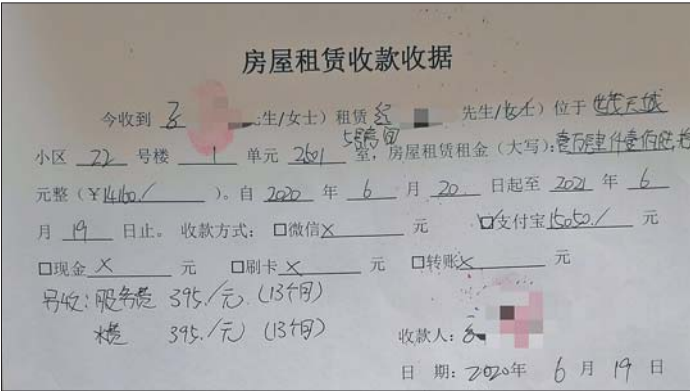 房屋租赁收款收据
今收到 生/女士）租赁 先生/女士）位于 世茂天城
5号房间
小区 22 号楼 1 单元 2601 室，房屋租赁租金（大写）：壹万肆仟壹佰陆拾
元整（￥14160./ ）。自 2020 年 6 月 20 日起至 2021 年 6
月 19 日止。收款方式：□微信 X 元 □支付宝 15050./ 元
□现金 X 元 □刷卡 X 元 □转账 X 元
另收：服务费 395./元（13个月）
水费 395./元（13个月）
收款人：
日 期：2020年 6 月 19 日